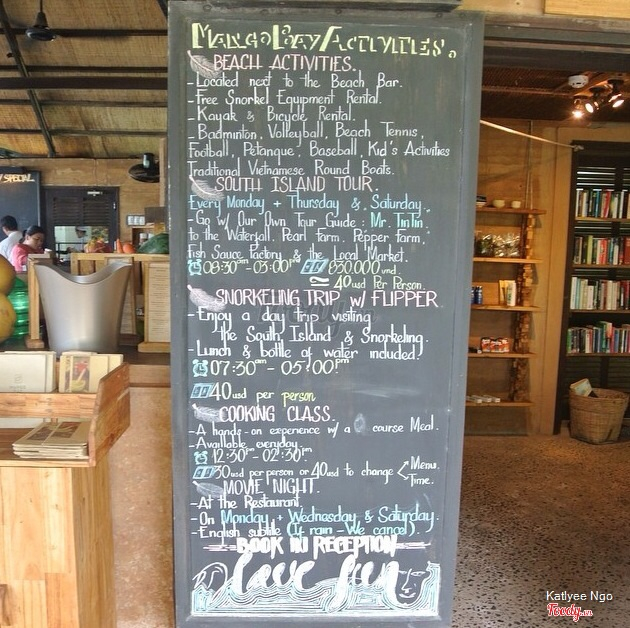 Mango Bay Activities.
BEACH ACTIVITIES.
- Located next to the Beach Bar.
- Free Snorkel Equipment Rental.
- Kayak & Bicycle Rental.
- Badminton, Volleyball, Beach Tennis,
Football, Petanque, Baseball, Kid's Activities
Traditional Vietnamese Round Boats.
SOUTH ISLAND TOUR.
Every Monday + Thursday & Saturday.
- Go w/ Our Own Tour Guide: Mr. TinTin
to the Waterfall, Pearl Farm, Pepper farm,
Fish Sauce Factory & the Local Market.
08:30am - 03:00pm 830.000 vnd.
≃ 40usd Per Person.
SNORKELING TRIP w/ FLIPPER
- Enjoy a day trip visiting
the South Island & Snorkeling.
- Lunch & bottle of water included!
07:30am - 05:00pm
40usd per person
COOKING CLASS.
- A hands-on experience w/ a course Meal.
- Available everyday.
12:30pm - 02:30pm
30usd per person or 40usd to change Menu.
Time.
MOVIE NIGHT.
- At the Restaurant.
- On Monday + Wednesday & Saturday.
- English subtitle (If rain - We cancel).
BOOK IN RECEPTION
love fun
SPECIAL
Katlyee Ngo
Foody.vn